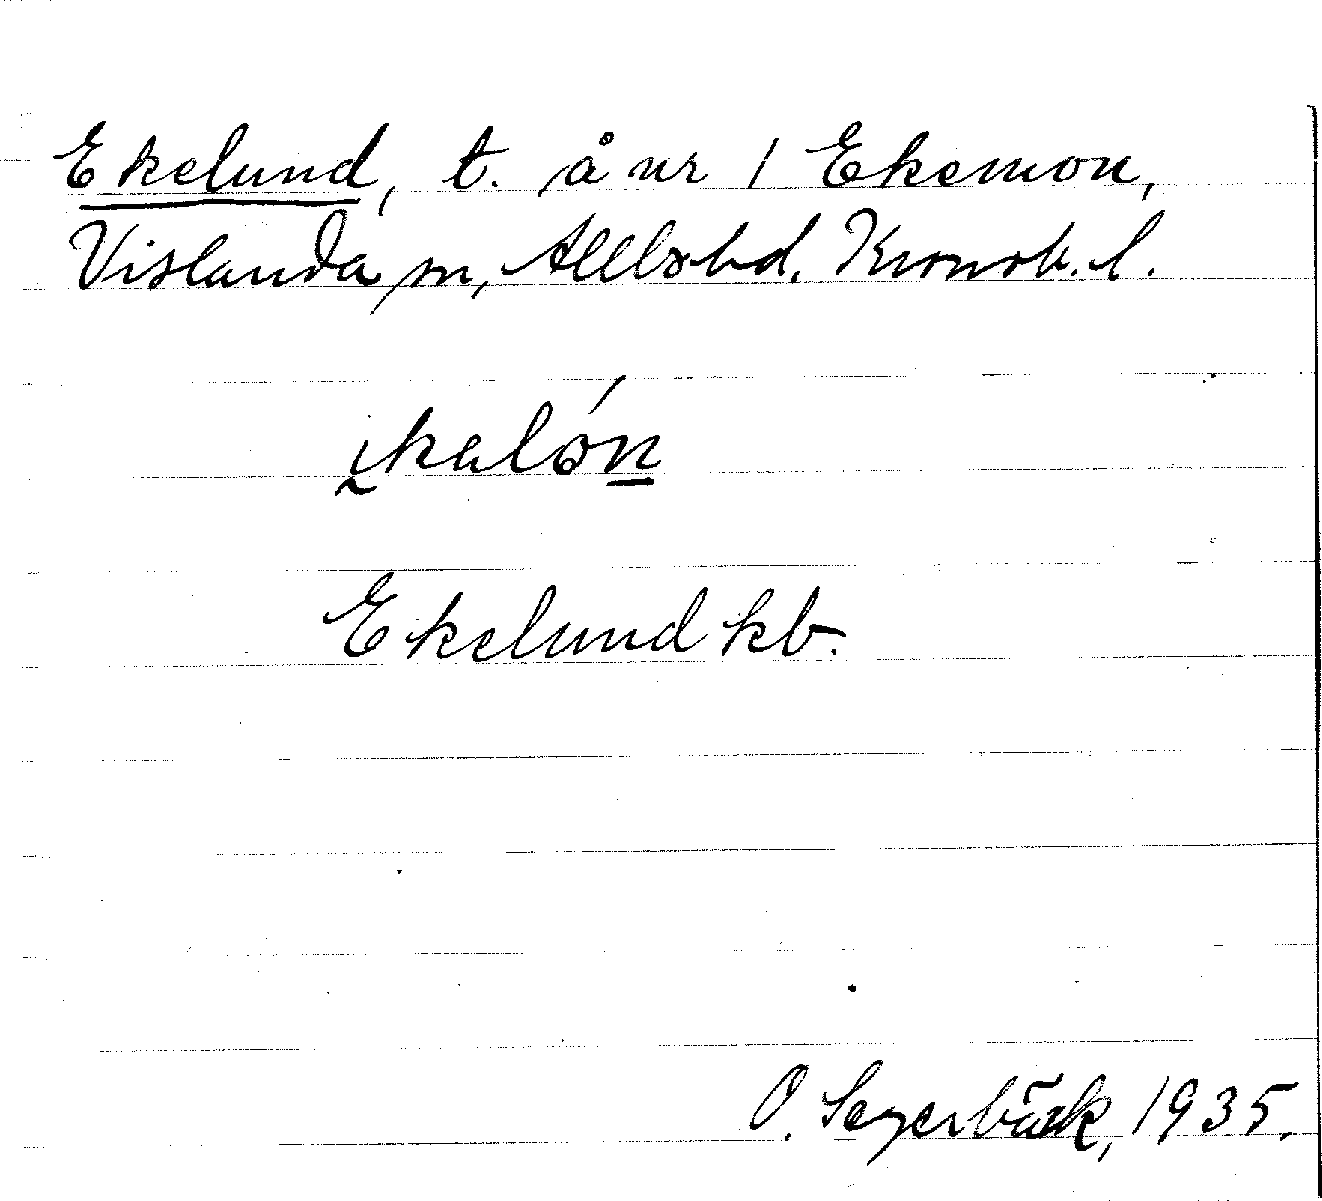 Ekelund, t. å nr 1 Ekemon,
Vislanda sn, Allbo hd. Kronob. l.
ikalón
Ekelund kb.
O. Segerbäck, 1935.